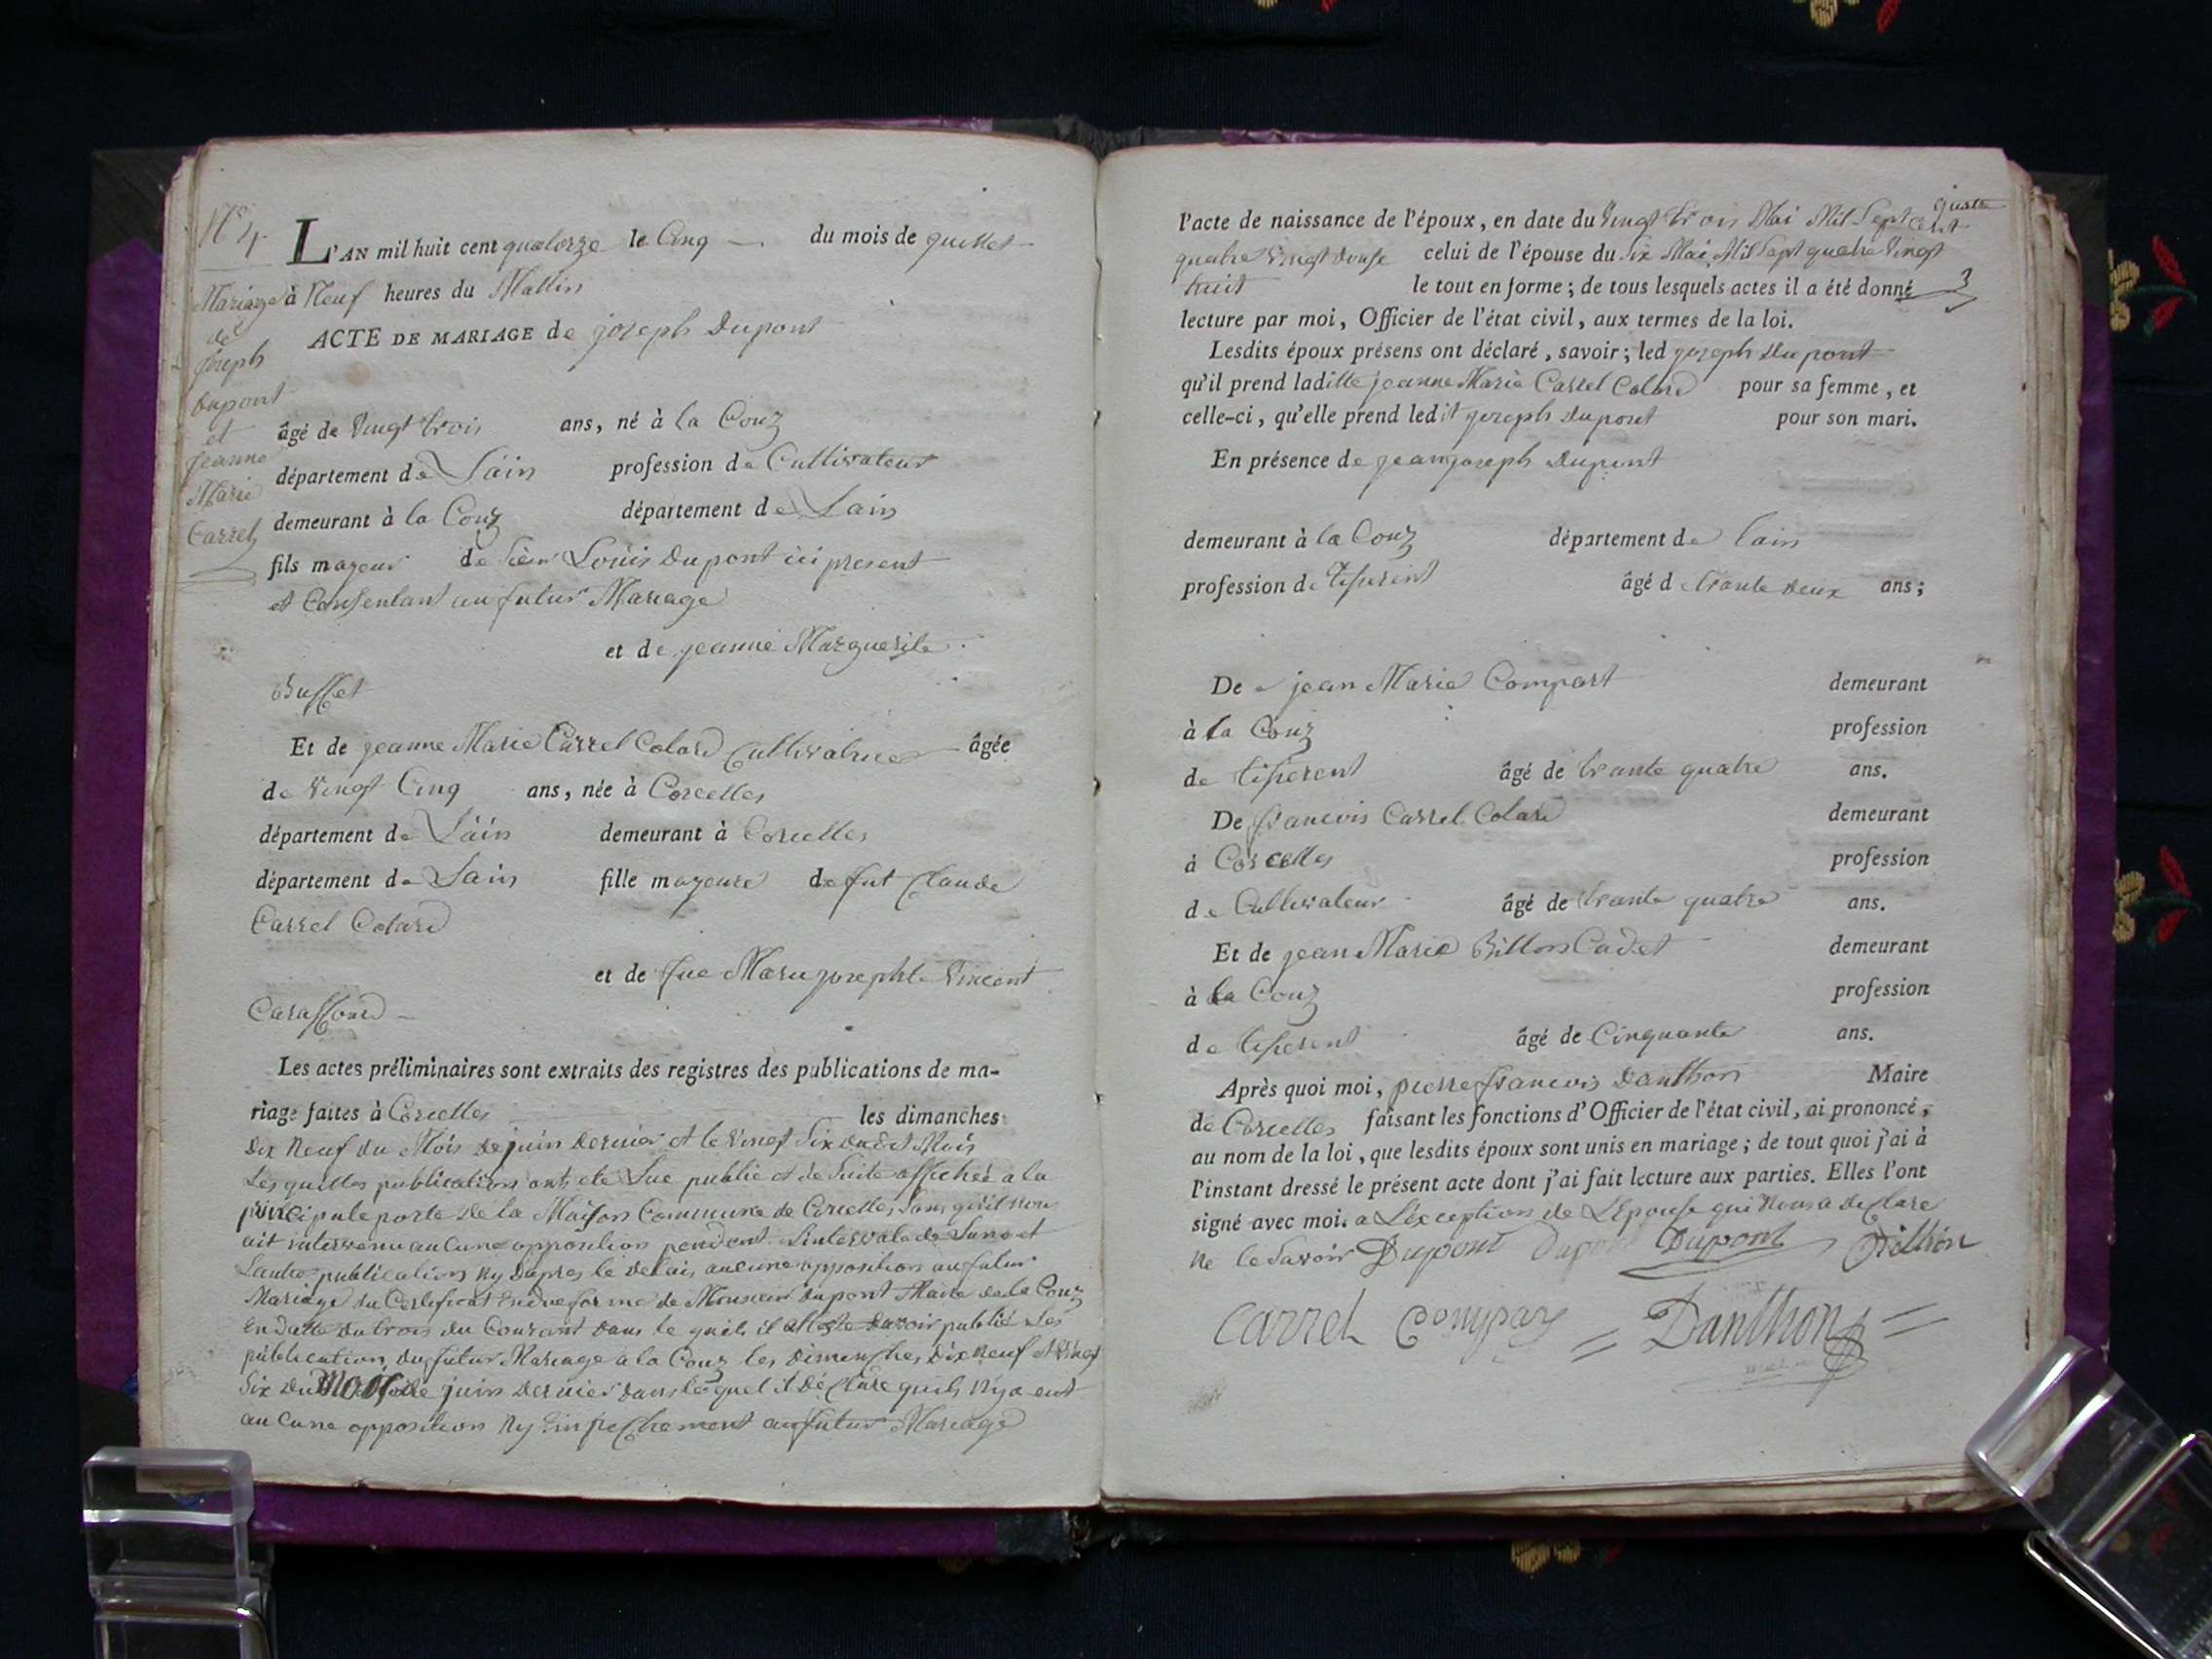 N° 4
Mariage
de
joseph
dupont
et
jeanne
Marie
Carrel
L'AN mil huit cent quatorze le Cinq du mois de juillet
à Neuf heures du Mattin
ACTE DE MARIAGE de joseph Dupont
âgé de Vingt trois ans, né à la Couz
département de Lain profession de Cultivateur
demeurant à la Couz département de Lain
fils mayeur de sieur Louis Dupont ici present
et Consentant au futur Mariage
et de jeanne Marguerite
Buffet
Et de jeanne Marie Carrel Colard Cultivatrice âgée
de Vingt Cinq ans, née à Corcelles
département de Lain demeurant à Corcelles
département de Lain fille mayeure de fut Claude
Carrel Colard
et de fue Marie josephte Vincent
Caraffond
Les actes préliminaires sont extraits des registres des publications de ma-
riage faites à Corcelles les dimanches
Dix Neuf du Mois de juin dernier et le Vingt Six dudit Mois
Les quelles publications ont ete Lue publié et de Suite affichée a la
principale porte de la Maison Commune de Corcelles Sans qu'il non
ait intervenu aucune opposition pendant Lintervale de Lune et
Lautre publication Ny Dapres le delais aucune opposition au futur
Mariage du Certificat Endue forme de Monsieur dupont Maire de la Couz
En datte du trois du Courant dans le quel il atteste davoir publié Les
publication du futur Mariage a la Couz les Dimanches Dix Neuf et Vingt
Six du Mois de juin dernier dans lequel il Déclare quils Nya eut
aucune opposition Ny Empechement au futur Mariage
l'acte de naissance de l'époux, en date du Vingt trois Mai Mil Sept cent
quatre Vingt Douse celui de l'épouse du Six Mai Mil Sept quatre Vingt
huit le tout en forme; de tous lesquels actes il a été donné
3
lecture par moi, Officier de l'état civil, aux termes de la loi.
Lesdits époux présens ont déclaré, savoir; led joseph Dupont
qu'il prend laditte jeanne Marie Carrel Colard pour sa femme, et
celle-ci, qu'elle prend ledit joseph Dupont pour son mari.
En présence de jean joseph Dupont
demeurant à la Couz département de Lain
profession de tisserent âgé de trante Deux ans;
De jean Marie Compart demeurant
à la Couz profession
de tisserent âgé de trante quatre ans.
De francois Carrel Colard demeurant
à Corcelles profession
de Cultivateur âgé de trante quatre ans.
Et de jean Marie Billon Cadet demeurant
à La Couz profession
de tisserent âgé de Cinquante ans.
Après quoi moi, pierre francois Danthon Maire
de Corcelles faisant les fonctions d'Officier de l'état civil, ai prononcé,
au nom de la loi, que lesdits époux sont unis en mariage; de tout quoi j'ai à
l'instant dressé le présent acte dont j'ai fait lecture aux parties. Elles l'ont
signé avec moi. a L'exception de L'Epouse qui Nous a declare
ne le Savoir Dupont Dupont Dupont Billion
Carrel Compar Danthon